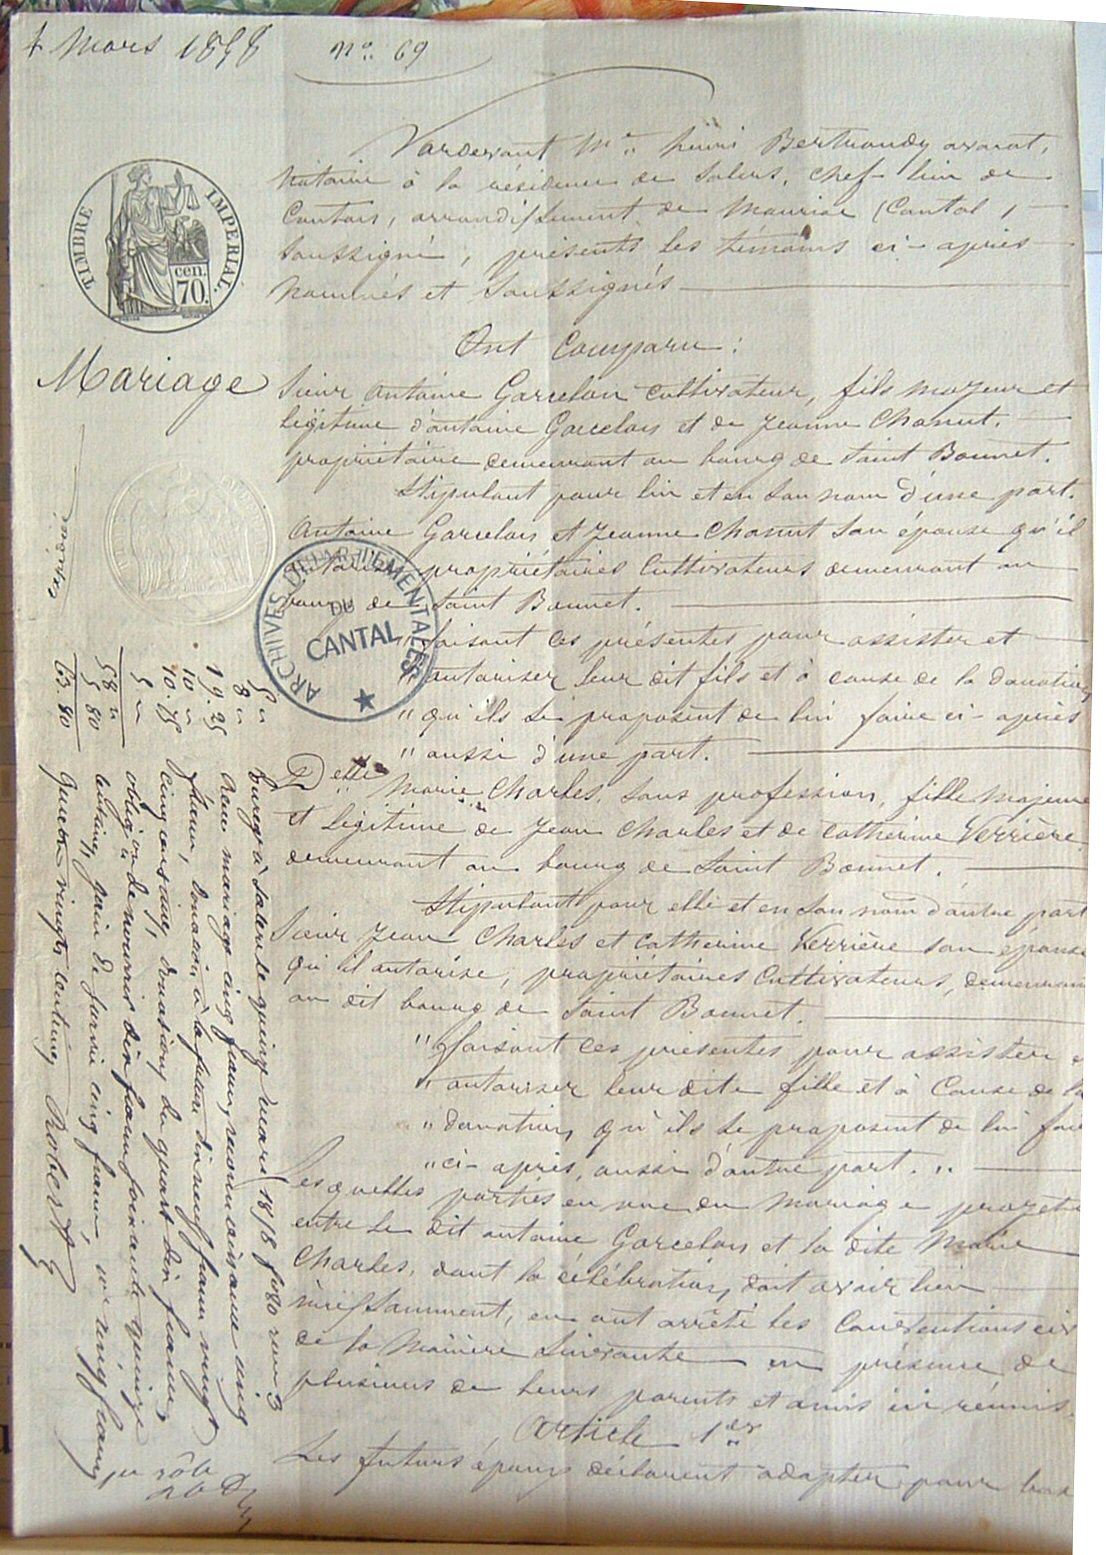 4 Mars 1858 nº 69
Pardevant Mᵉ henri Bertrandy avocat,
Notaire à la résidence de Salers, chef lieu de
Canton, arrondissement de Mauriac (Cantal)
Soussigné, présents les témoins ci-après
Nommés et Soussignés
TIMBRE IMPERIAL.
cen.
70.
Ont Comparu :
Mariage
Sieur antoine Garcelon cultivateur, fils majeur et
légitime d'antoine Garcelon et de Jeanne Chanut,
propriétaire demeurant au bourg de Saint Bonnet.
Stipulant pour lui et en son nom d'une part.
Antoine Garcelon et Jeanne Chanut son épouse qu'il
autorise propriétaires Cultivateurs demeurant au
bourg de Saint Bonnet.
ARCHIVES DEPARTEMENTALES
DU
CANTAL
faisant ces présentes pour assister et
" autoriser leur dit fils et à cause de la donation
" qu'ils se proposent de lui faire ci-après
" aussi d'une part.
Delle Marie Charles, sans profession, fille majeure
et légitime de Jean Charles et de Catherine Verrière
demeurant au bourg de Saint Bonnet.
Stipulant pour elle et en son nom d'autre part
Sieur Jean Charles et Catherine Verrière son épouse
qu'il autorise, propriétaires Cultivateurs, demeurant
au dit bourg de Saint Bonnet.
" faisant ces présentes pour assister
" autoriser leur dite fille et à Cause de la
" donation qu'ils se proposent de lui
" ci-après, aussi d'autre part. "
Lesquelles parties en vue du mariage projeté
entre le dit antoine Garcelon et la dite Marie
Charles, dont la célébration doit avoir lieu
incessamment, en ont arrêté les Conventions
de la Manière Suivante en présence de
plusieurs de leurs parents et amis ici réunis.
Article 1er
Les futurs époux déclarent adopter pour
5 "
8 "
19. 25
10 "
10. 75
5 "
58 "
5 80
63. 80
Enregé à Salers le quinze mars 1858 fo 80
Reçu mariage cinq francs,
futur, donation à la future dix neuf francs vingt
cinq centimes, donation du quart dix francs
obligon de nourrir dix francs soixante quinze
centimes, gain de survie cinq francs,
quatre vingts centimes Robert